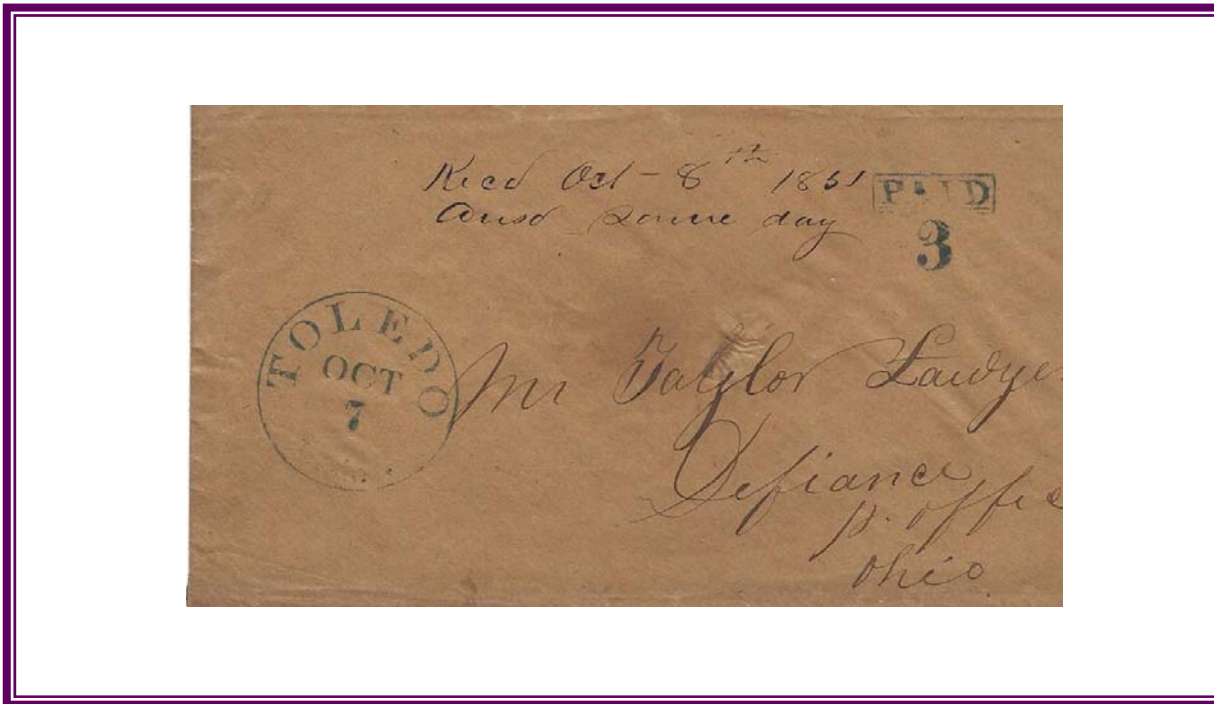 Recd Oct - 8th 1851
Ansd same day
PAID
3
TOLEDO
OCT
7
Mr Taylor Lawye
Defiance
P. Offic
Ohio